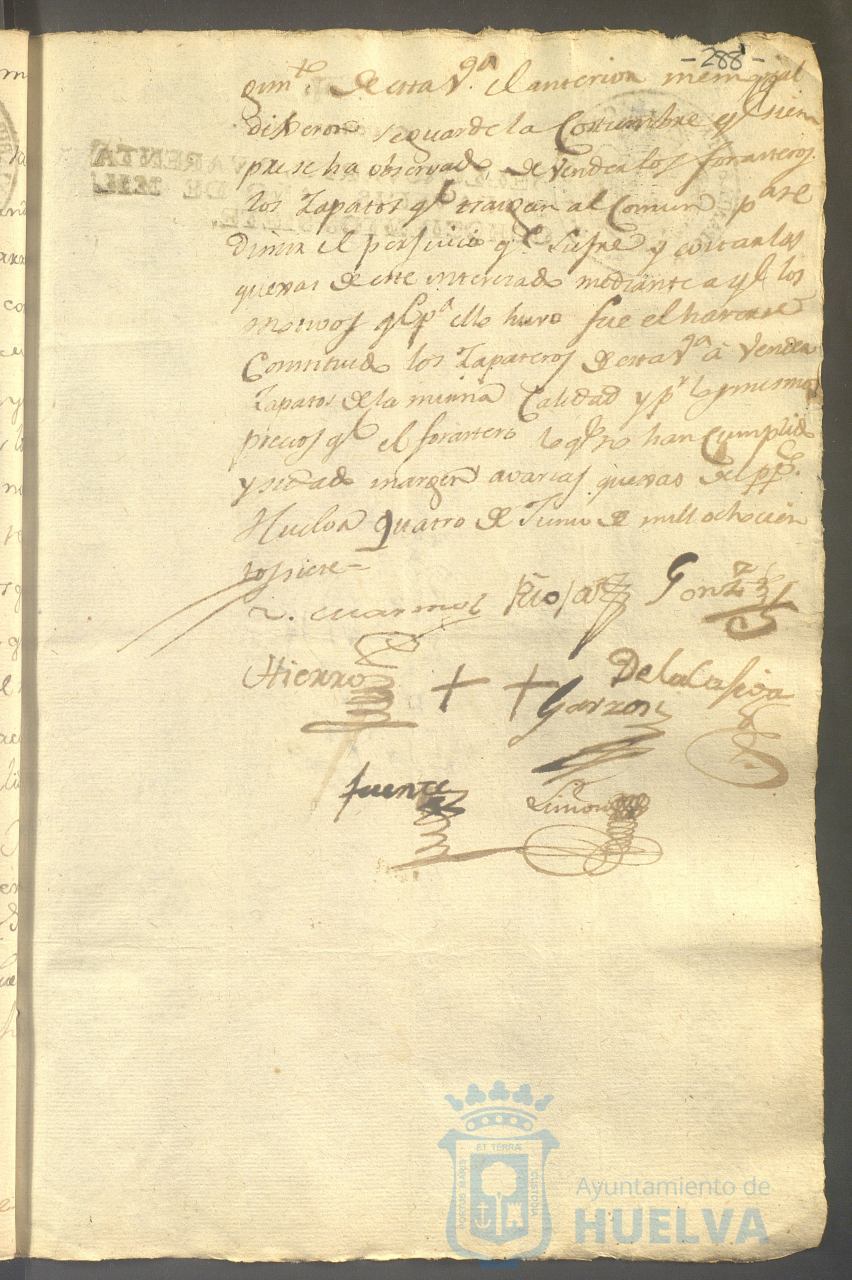 -288-
gim.to De esta V.a el anterior memorial
dixeron se guarde la Costumbre q.e siem
pre se ha observado de vender los forasteros
los Zapatos q.e traigan al Comun p.a re
dimir el perjuicio q.e sufre y cortar las
quexas de este interesado mediante a q.e los
motivos q.e p.a ello huvo fue el haverse
Constituido los Zapateros de esta V.a â vender
Zapatos de la misma Calidad y p.r los mismos
precios q.e el forastero lo q.e no han Cumplido
y se ha dado margen a varias quexas del pp.co
Huelva Quatro de Junio de mill ochocien
tos siete=
Gonz.z
Hierro
+ +
Garzon
De la Casa
fuente
Limon
VARENTA
DE MIL
ET TERRÆ
CUSTODIA
Ayuntamiento de
HUELVA